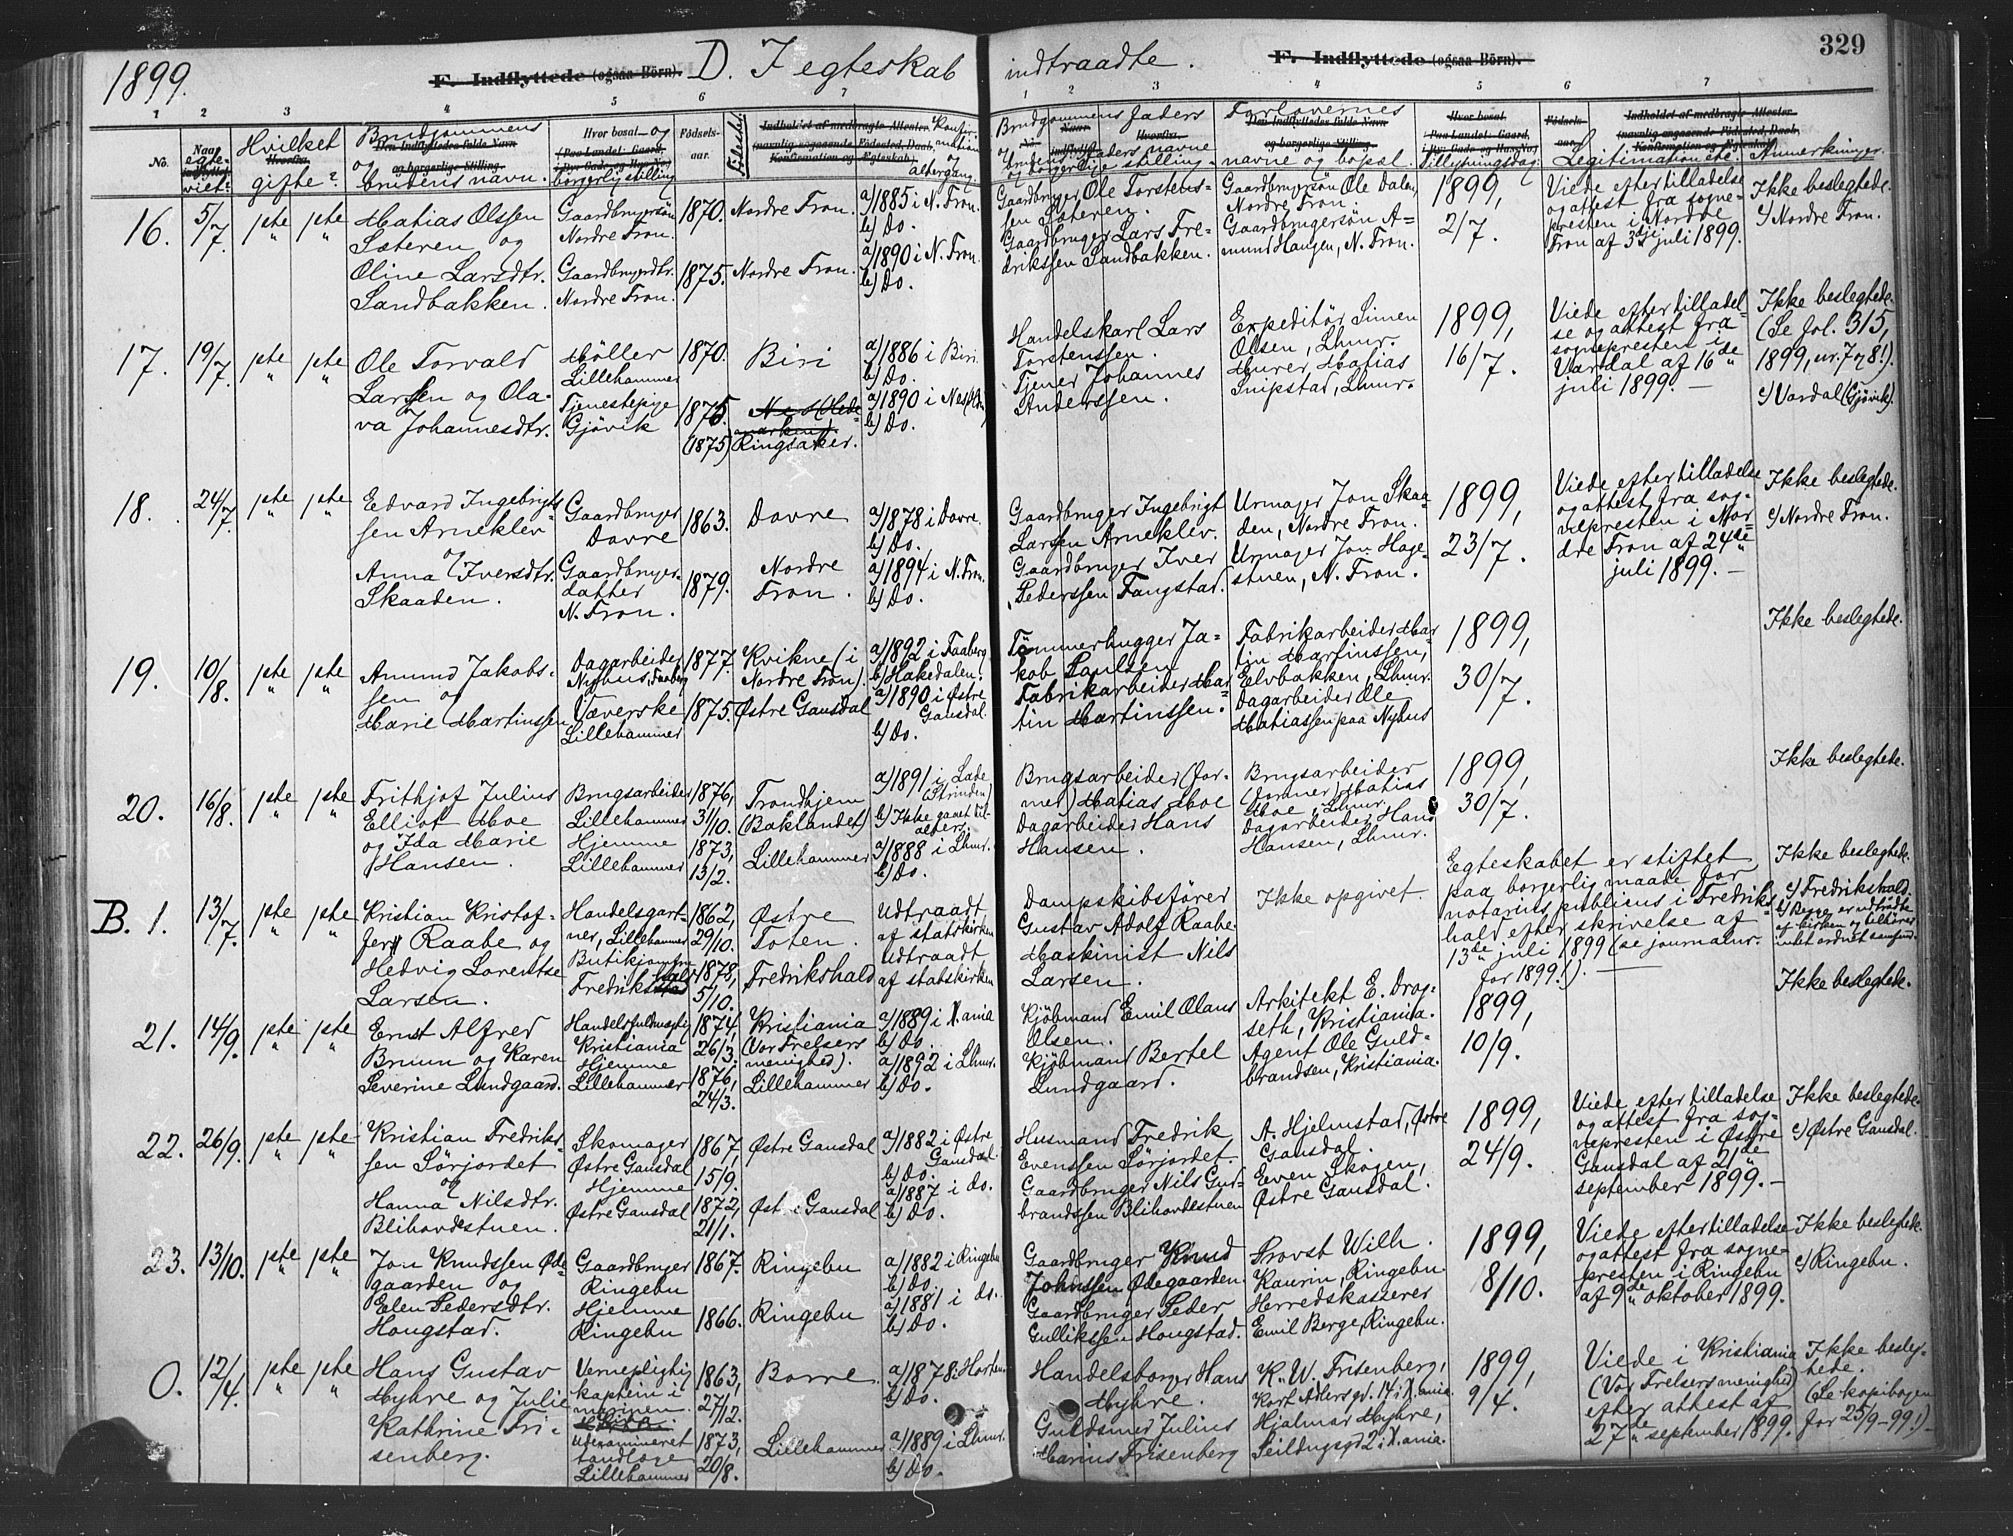 329
1899. D. I egteskab indtraadte.
F. Indflyttede (ogsaa Börn). F. Indflyttede (ogsaa Börn).
1 2 3 4 5 6 7 1 2 3 4 5 6 7
No. Naar egteviet? Hvilket gifte? Brudgommens og brudens navn. Hvor bosat og borgerlig stilling Födselsaar. Födested.
Brudgommens faders Forlovernes navne og bopæl. Tillysningsdag. Legitimation etc. Anmerkninger.
16. 5/7. 1ste 1ste
Mathias Olssen
Sæteren og
Oline Larsdtr.
Sandbakken.
Gaardbrugersön
Nordre Fron.
Gaardbrugerdtr.
Nordre Fron.
1870. Nordre Fron.
1875. Nordre Fron.
a) 1885 i N. Fron.
b) Do.
a) 1890 i N. Fron.
b) Do.
Gaardbruger Ole Torstens-
sen Sæteren.
Gaardbruger Lars Fre-
drikssen Sandbakken.
Gaardbrugersön Ole Dalen,
Nordre Fron.
Gaardbrugersön A-
mund Haugen, N. Fron.
1899,
2/7.
Viede efter tilladelse
og attest fra sogne-
presten i Nordre
Fron af 3dje juli 1899.
Ikke beslegtede.
c) Nordre Fron.
17. 19/7. 1ste 1ste
Ole Torvald
Larssen og Ola-
va Johannesdtr.
Möller
Lillehammer
Tjenestepige
Gjövik
1870. Biri
1876. (1875) Nes (Hede-
marken).
Ringsaker.
a) 1886 i Biri.
b) Do.
a) 1890 i Nes
b) Do.
Handelskarl Lars
Torstenssen.
Tjener Johannes
Anderssen.
Expeditör Simen
Olsen, Lhmr.
Murer Mathias
Snipstad, Lhmr.
1899,
16/7.
Viede efter tilladel-
se og attest fra
sognepresten i
Vardal af 16de
juli 1899.
Ikke beslegtede.
(Se fol. 315,
1899, nr. 7 og 8!).
c) Vardal (Gjövik).
18. 24/7. 1ste 1ste
Edvard Ingebrigt-
sen Arneklev
og
Anna Iversdtr.
Skaaden.
Gaardbruger
Dovre
Gaardbruger-
datter
N. Fron.
1863. Dovre
1879. Nordre
Fron.
a) 1878 i Dovre.
b) Do.
a) 1894 i N. Fron.
b) Do.
Gaardbruger Ingebrigt
Larsen Arneklev.
Gaardbruger Iver
Pederssen Fangstad.
Urmager Jon Skaa-
den, Nordre Fron.
Urmager Jon Hage-
stuen, N. Fron.
1899,
23/7.
Viede efter tilladelse
og attest fra sog-
nepresten i Nor-
dre Fron af 24de
juli 1899.
Ikke beslegtede.
c) Nordre Fron.
19. 10/8. 1ste 1ste
Amund Jakobs-
sen og
Marie Martinssen
Dagarbeider
Nyhus, Faaberg
Væverske
Lillehammer
1877. Kvikne (i
Nordre Fron).
1875. Østre Gausdal
a) 1892 i Faaberg
b) Hakedalen.
a) 1890 i Østre
Gausdal.
b) Do.
Tömmerhugger Ja-
kob Paulsen
Fabrikarbeider Mar-
tin Martinssen.
Fabrikarbeider Mar-
tin Martinssen,
Elvbakken, Lhmr.
Dagarbeider Ole
Mathiassen paa Nyhus
1899,
30/7.
Ikke beslegtede.
20. 16/8. 1ste 1ste
Frithjof Julius
Elliot Moe
og Ida Marie
Hansen.
Brugsarbeider
Lillehammer
Hjemme
Lillehammer
1876,
31/10.
1873,
13/2.
Trondhjem
(Baklandet)
Lillehammer
a) 1891 i Lade
(Strinden)
b) Ikke gaaet til-
alters.
a) 1888 i Lhmr.
b) Do.
Brugsarbeider (for-
mer) Mathias Moe
Dagarbeider Hans
Hansen.
Brugsarbeider
(former) Mathias
Moe, Lhmr.
Dagarbeider Hans
Hansen, Lhmr.
1899,
30/7.
Ikke beslegtede.
B. 1. 13/7. 1ste 1ste
Kristian Kristof-
fer Raabe og
Hedvig Lorentse
Larsen.
Handelsgart-
ner, Lillehammer
Butikjomfru
Fredrikshald
1862,
29/10.
1878,
5/10.
Østre
Toten.
Fredrikshald
Udtraadt
af statskirken
Udtraadt
af statskirken
Dampskibsförer
Gustav Adolf Raabe.
Maskinist Nils
Larsen.
Ikke opgivet.
Egteskabet er stiftet
paa borgerlig maade for
notarius publicus i Fredriks-
hald efter skrivelse af
13de juli 1899 (se journalnr.
for 1899!).
Ikke beslegtede.
c) Fredrikshald.
b) Begge er udtraadte
af kirken og tilhörer
intet ordnet samfund.
21. 14/9. 1ste 1ste
Ernst Alfred
Bruun og Karen
Severine Lundgaard.
Handelsfuldmægtig
Kristiania
Hjemme
Lillehammer
1874,
26/3.
1876,
24/3.
Kristiania
(Vor Frelsers
menighed).
Lillehammer
a) 1889 i X.ania
b) Do.
a) 1892 i Lhmr.
b) Do.
Kjöbmand Emil Olaus
Olsen.
Kjöbmand Bertel
Lundgaard.
Arkitekt E. Drog-
seth, Kristiania.
Agent Ole Guld-
brandsen, Kristiania.
1899,
10/9.
Ikke beslegtede.
22. 26/9. 1ste 1ste
Kristian Fredrik-
sen Sörjordet
og
Hanna Nilsdtr.
Blihovdestuen.
Skomager
Østre Gausdal
Hjemme
Østre Gausdal
1867,
15/9.
1872,
21/1.
Østre Gausdal
Østre Gausdal
a) 1882 i Østre
Gausdal.
b) Do.
a) 1887 i do.
b) Do.
Husmand Fredrik
Evenssen Sörjordet.
Gaardbruger Nils Gud-
brandssen Blihovdestuen
A. Hjelmstad, Østre
Gausdal.
Even Skogen,
Østre Gausdal.
1899,
24/9.
Viede efter tilladelse
og attest fra sog-
nepresten i Østre
Gausdal af 21de
september 1899.
Ikke beslegtede.
c) Østre Gausdal.
23. 13/10. 1ste 1ste
Jon Knudssen Øde-
gaarden og
Elen Pedersdtr.
Hougstad.
Gaardbruger
Ringebu
Hjemme
Ringebu
1867. Ringebu
1866. Ringebu
a) 1882 i Ringebu
b) Do.
a) 1881 i do.
b) Do.
Gaardbruger Knud
Johnssen Ødegaarden.
Gaardbruger Peder
Gullikssen Hougstad.
Provst Wilh.
Kaurin, Ringebu.
Herredskasserer
Emil Berge, Ringebu.
1899,
8/10.
Viede efter tilladelse
og attest fra sogne-
presten i Ringebu
af 9de oktober 1899.
Ikke beslegtede.
c) Ringebu.
0. 12/4. 1ste 1ste
Hans Gustav
Myhre og Julie
Kathrine Fri-
senberg.
Vernepligtig
kaptein i
marinen.
Udexamineret
tandlæge
Lillehammer
1863,
27/12.
1873,
20/8.
Borre.
Lillehammer
a) 1878 i Horten
b) Do.
a) 1889 i Lhmr.
b) Do.
Handelsborger Hans
Myhre.
Guldsmed Julius
Marius Frisenberg
K. W. Frisenberg,
Kort Adlersgd. 14 i X.ania.
Hjalmar Myhre,
Seildugsgd 2 i X.ania.
1899,
9/4.
Viede i Kristiania
(Vor Frelsers menighed)
efter attest af
27de september 1899.
Ikke besleg-
tede.
(Se kopibogen
for 25/9-99!)